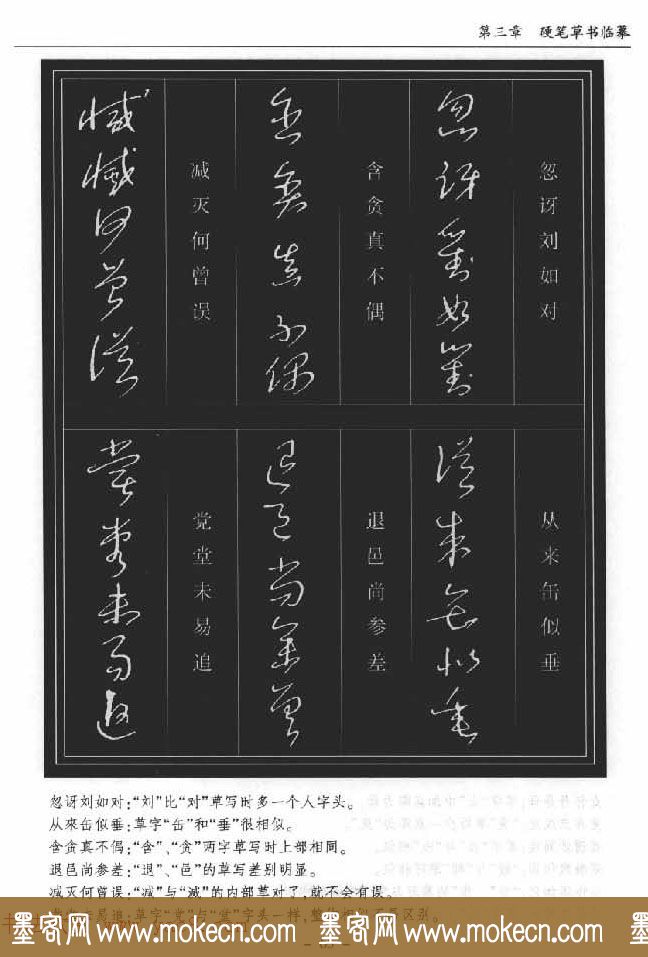 第三章 硬笔草书临摹
忽讶刘如对
含贪真不偶
减灭何曾误
从来缶似垂
退邑尚参差
党堂未易追
忽讶刘如对:“刘”比“对”草写时多一个人字头。
从來缶似垂:草字“缶”和“垂”很相似。
含贪真不偶:“含”、“贪”两字草写时上部相同。
退邑尚参差:“退”、“邑”的草写差别明显。
减灭何曾误:“减”与“滅”的内部草对了,就不会有误。
易追:草字“党”与“堂”字头一样,
区别。
墨客网 www.mokecn.com 墨客网 www.mokecn.com 墨客网